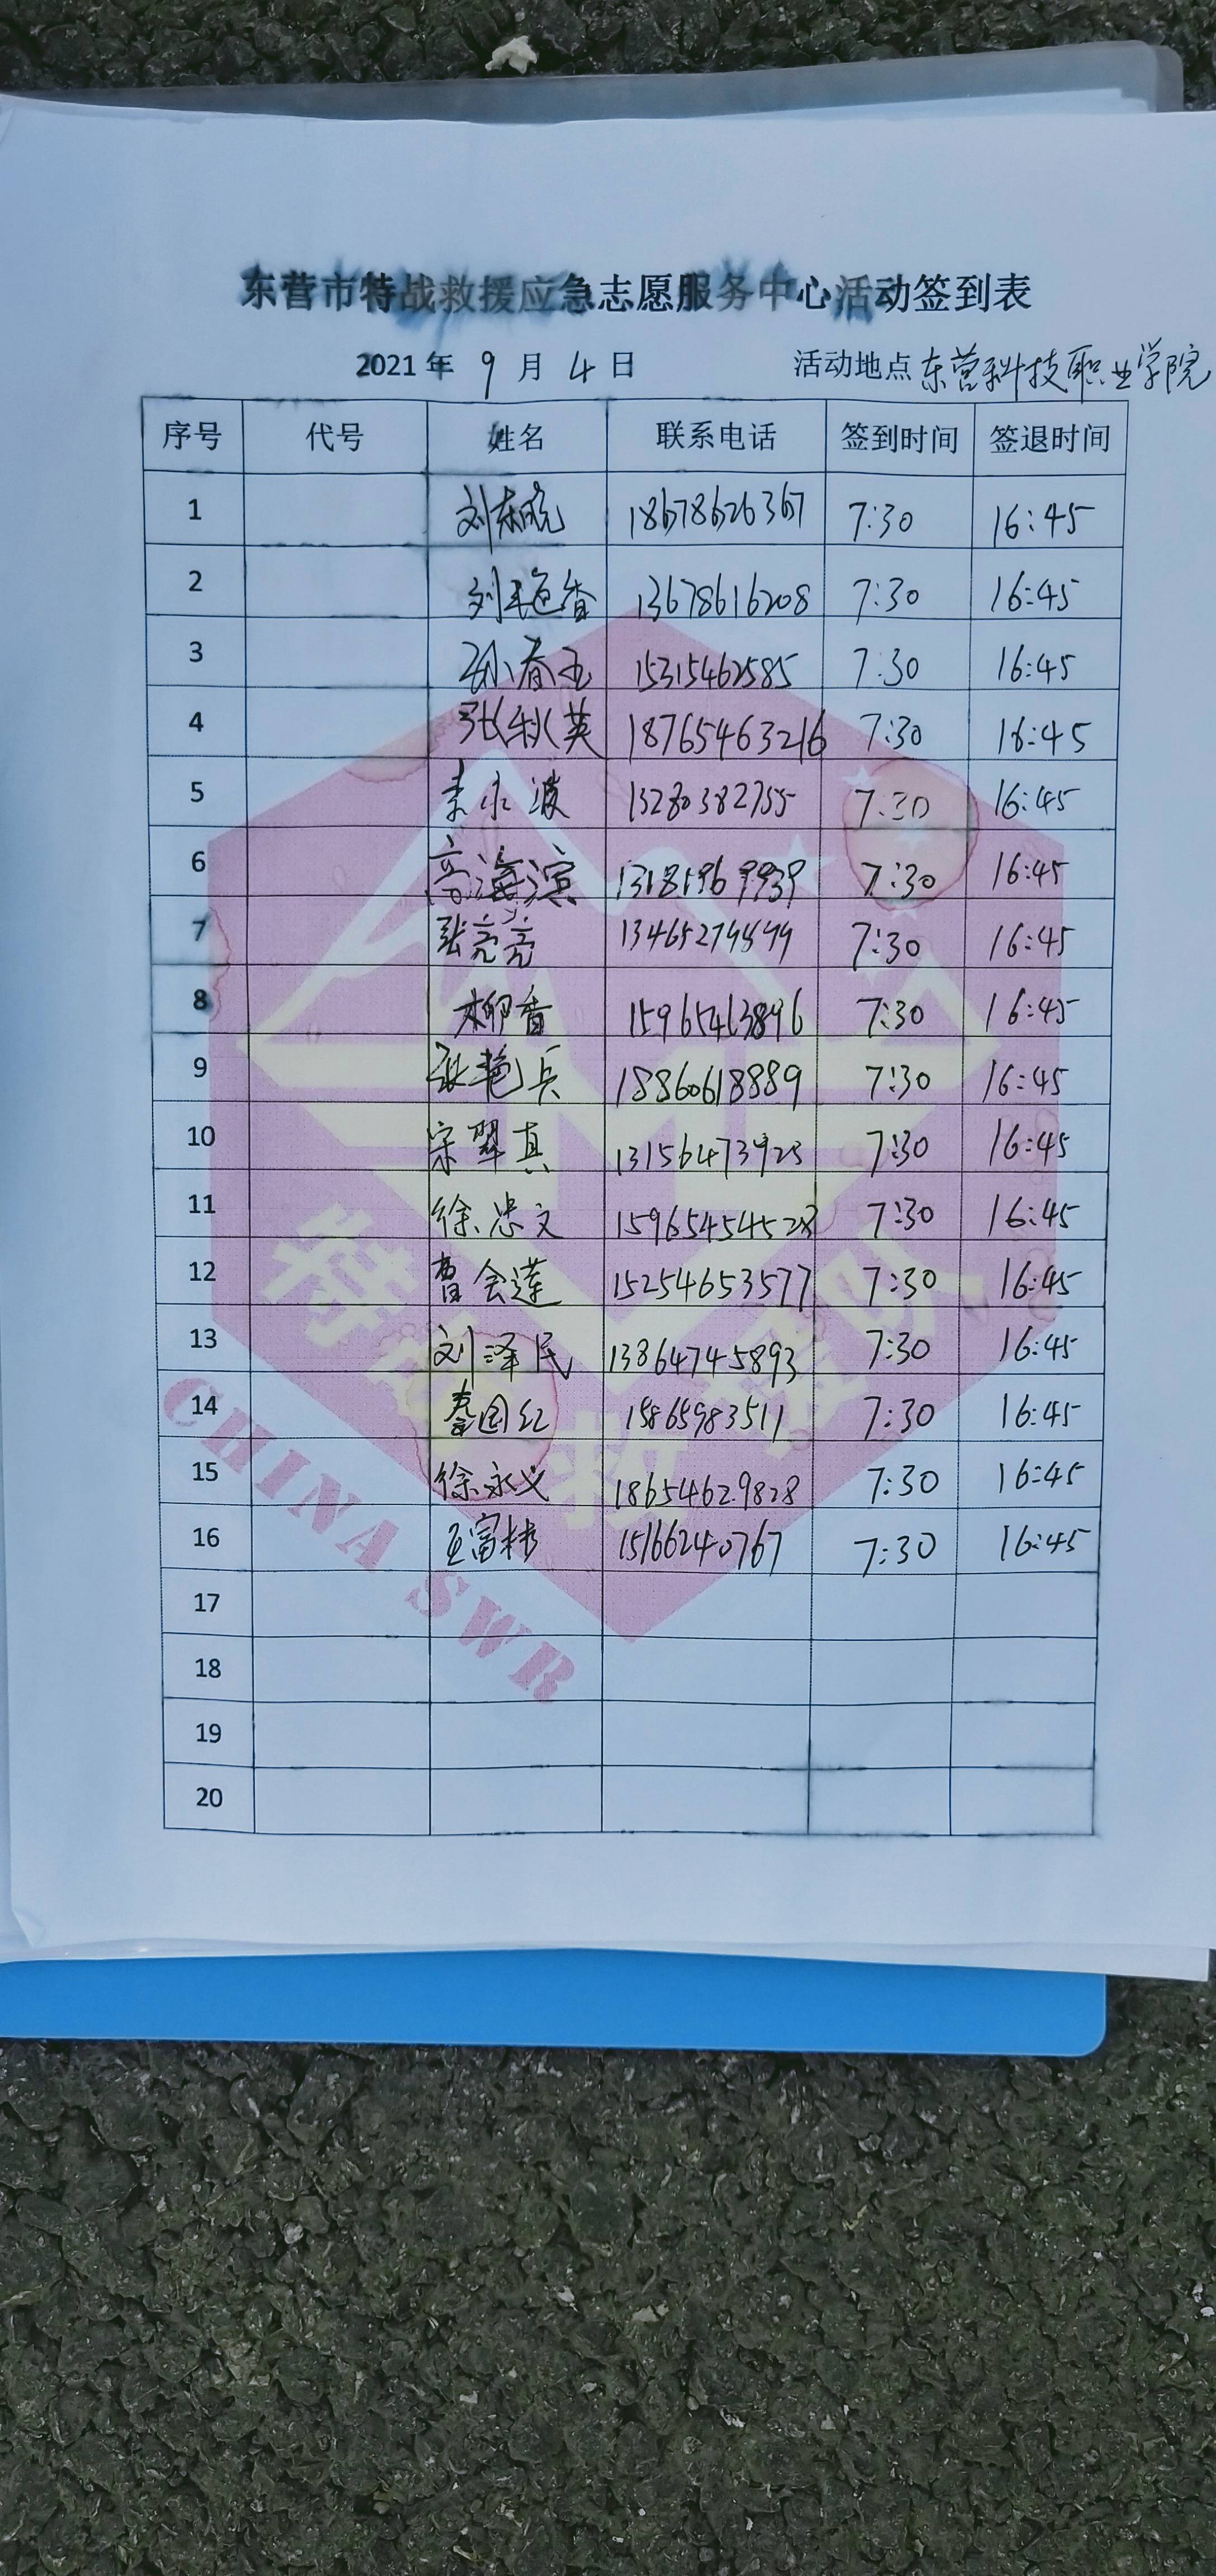 东营市特战救援应急志愿服务中心活动签到表
2021 年 9 月 4 日 活动地点 东营科技职业学院
序号 代号 姓名 联系电话 签到时间 签退时间
1 刘东晓 18678626367 7:30 16:45
2 刘艳香 13678616208 7:30 16:45
3 孙春玉 15315462585 7:30 16:45
4 张秋英 18765463216 7:30 16:45
5 李永波 13280382755 7:30 16:45
6 高海滨 7:30 16:45
7 张亮亮 7:30 16:45
8 柳香 15965463896 7:30 16:45
9 张艳兵 18860618889 7:30 16:45
10 宋翠真 13156473923 7:30 16:45
11 徐忠文 15965454528 7:30 16:45
12 曹会莲 15254653577 7:30 16:45
13 刘泽民 13864745893 7:30 16:45
14 秦国红 15865983511 7:30 16:45
15 徐永义 18654629828 7:30 16:45
16 王富彬 15166240767 7:30 16:45
17
18
19
20
特战救援队
CHINA SWR